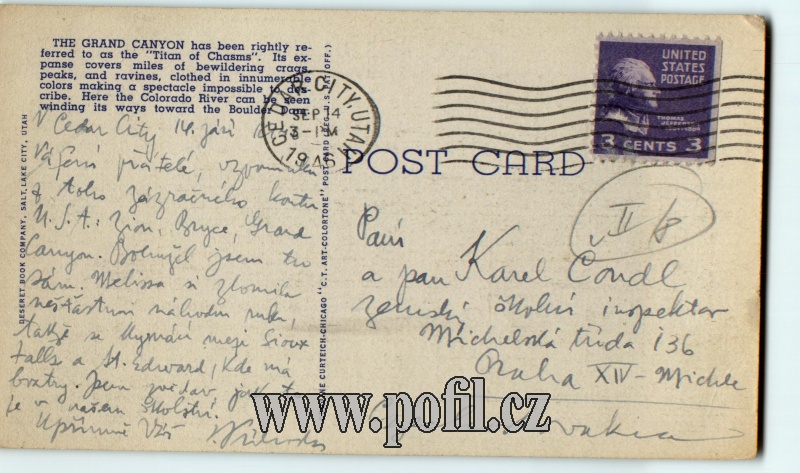 THE GRAND CANYON has been rightly re-
ferred to as the "Titan of Chasms". Its ex-
panse covers miles of bewildering crags,
peaks, and ravines, clothed in innumerable
colors making a spectacle impossible to des-
cribe. Here the Colorado River can be seen
winding its ways toward the Boulder Dam.
V Cedar City 14. září
Vážení přátelé, vzpomínku
z toho zázračného koutu
U.S.A.: Zion, Bryce, Grand
Canyon. Bohužel jsem tu
sám. Melissa si zlomila
nešťastnou náhodou ruku,
takže se kymácí mezi Sioux
Falls a St. Edward, kde má
bratry. Jsem zvědav, jak
je v našem školství.
Upřímně Váš
DESERET BOOK COMPANY, SALT LAKE CITY, UTAH
"C.T. ART-COLORTONE" POST CARD (REG. U.S. PAT. OFF.)
CEDAR CITY, UTAH
SEP 14
3-PM
POST CARD
UNITED
STATES
POSTAGE
THOMAS
JEFFERSON
3 CENTS 3
II/8
Paní
a pan Karel Čondl
zemský školní inspektor
Michelská třída 136
Praha XIV - Michle
www.pofil.cz